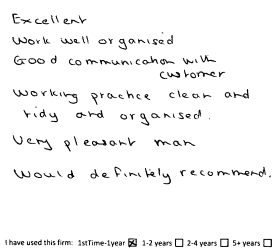 Excellent
Work well organised
Good communication with
customer
Working practice clean and
tidy and organised.
Very pleasant man
Would definitely recommend.
I have used this firm: 1stTime-1year ☒ 1-2 years ☐ 2-4 years ☐ 5+ years ☐